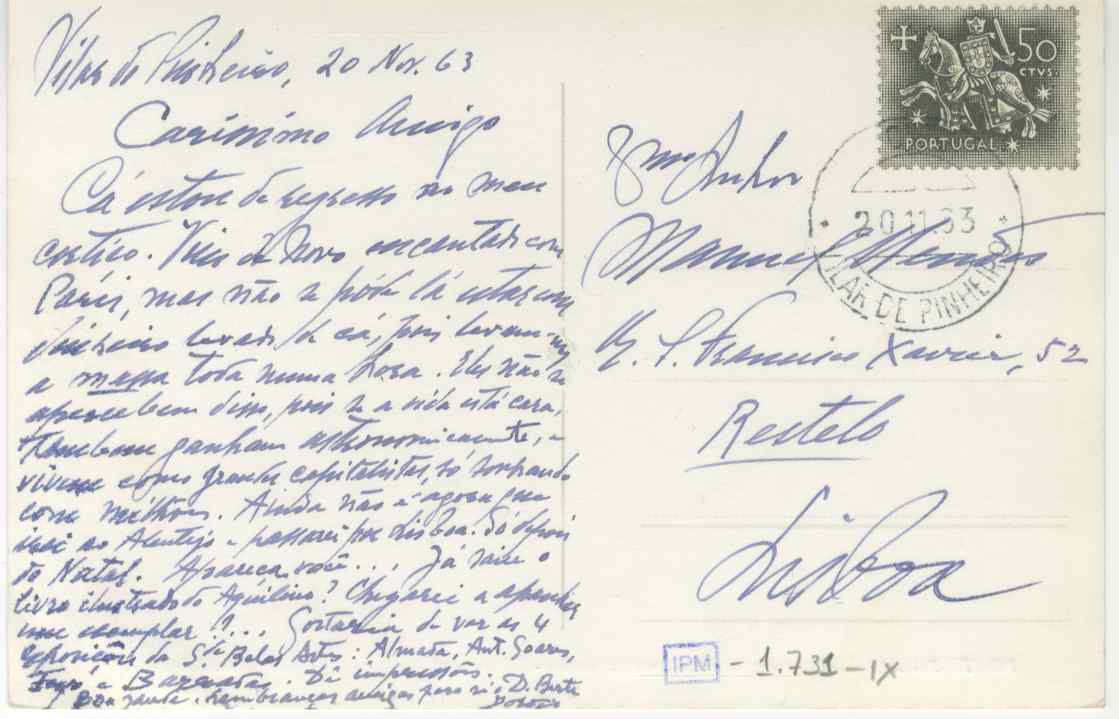 Vilar do Pinheiro, 20 Nov. 63
Caríssimo Amigo
Cá estou de regresso ao meu
cortiço. Vim de novo encantado com
Paris, mas não se póde lá estar com
dinheiro levado de cá, pois levam-nos
a mapa toda numa hora. Eles não se
apercebem disso, pois se a vida está cara,
tambem ganham astronomicamente, e
vivem como grandes capitalistas, só sonhando
com milhões. Ainda não é agora que
irei ao Alentejo e passarei por Lisboa. Só depois
do Natal. Apareça você... Já saiu o
livro ilustrado do Aquilino? Chegarei a apanhar
um exemplar!?... Gostaria de ver as 4
exposições da Sde Belas Artes: Almada, Ant. Soares,
e Barradas. Dê impressões.
Boa saude. Lembranças amigas para si e D. Berta
Exmo Senhor
Manuel Mendes
R. S. Francisco Xavier, 52
Restelo
Lisboa
50
CTVS.
PORTUGAL
20.11.63
VILAR DE PINHEIRO
IPM - 1.731-IX